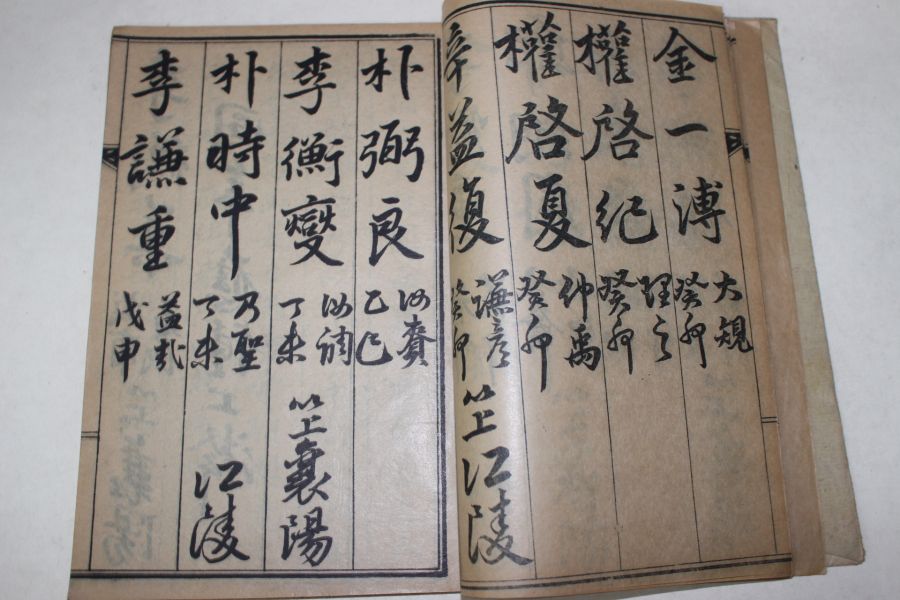 金一溥 大規 癸卯
權啓紀 理之 癸卯
權啓夏 仲禹 癸卯
辛益復 謙彦 癸卯 以上江陵
朴弼良 汝賚 乙巳
李衡燮 汝調 丁未 以上襄陽
朴時中 乃聖 丁未 江陵
李謙重 益哉 戊申